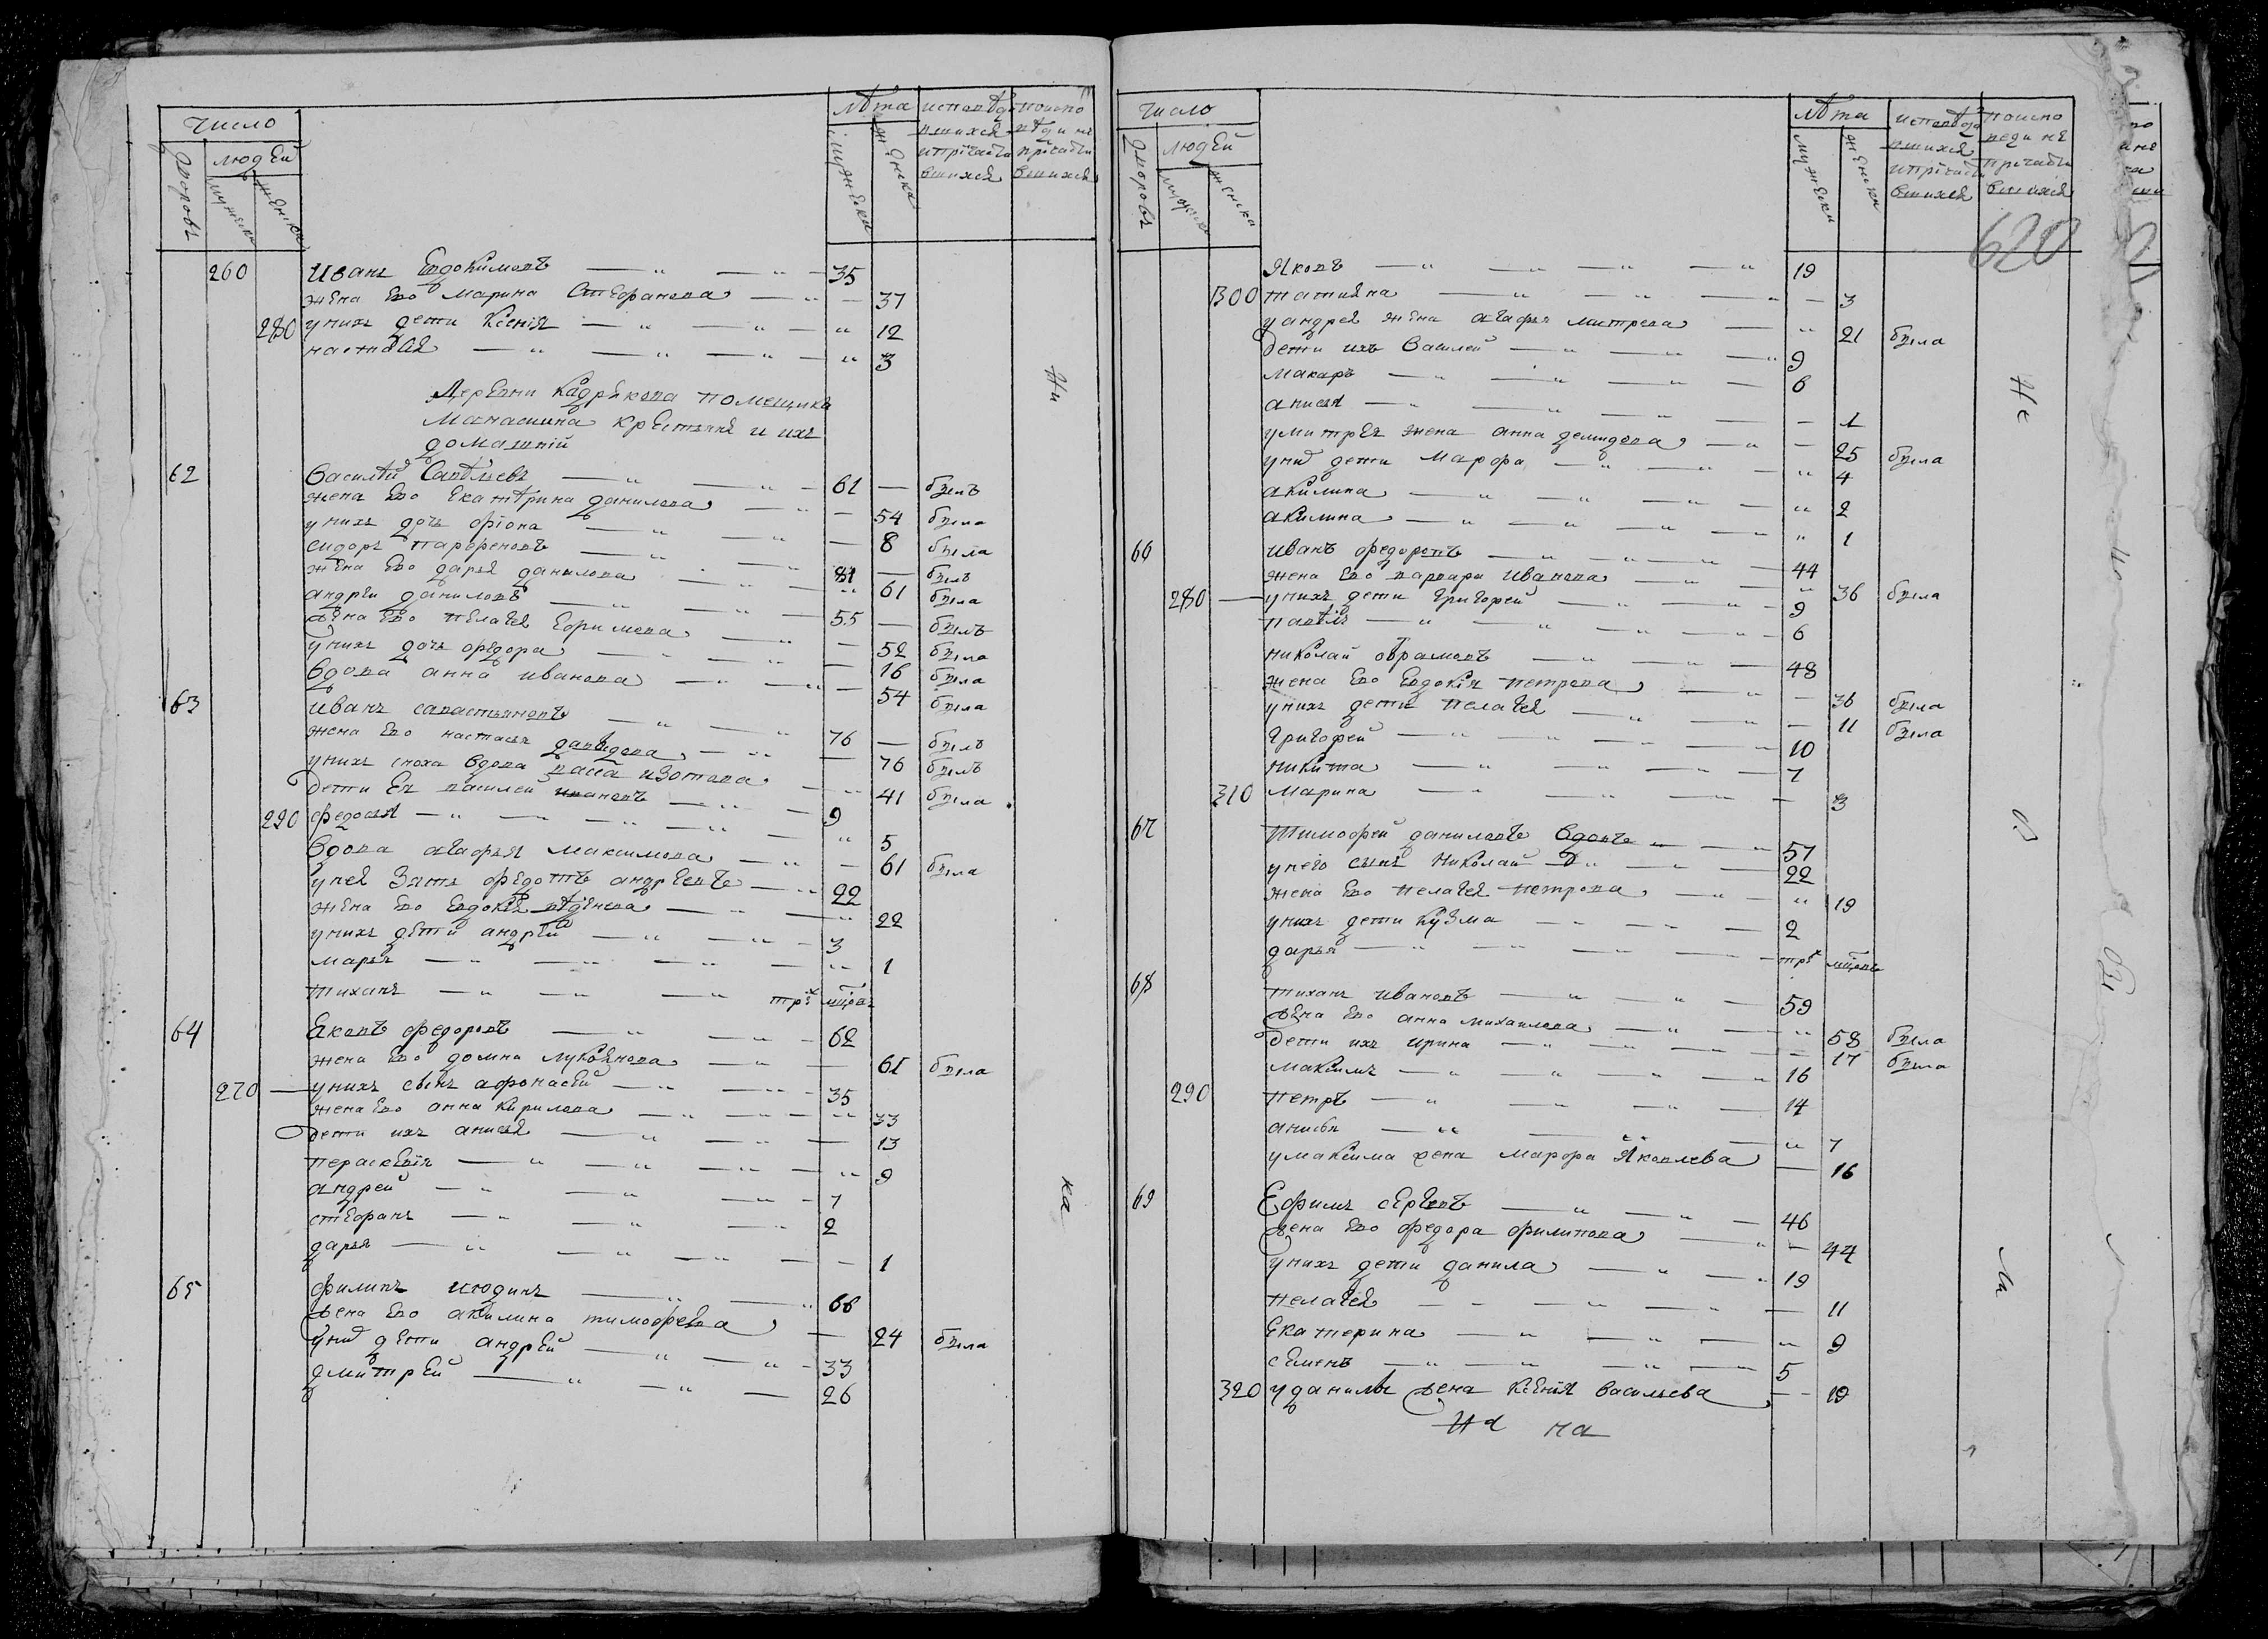 число
лѣта
исповѣда
поиспо
людей
вшихся
вѣди не
дворовъ
мужеска
женска
мужеска
женска
ипричасти
причасти
вшихся
вшихся
260 Иванъ Евдокимовъ 35
жена ево марина Стефанова 37
280 унихъ дети Ксенія 12
настасія 3
Деревни Кадрѣкова помещика
Манасеина крестьяня и ихъ
домашній
62 Василѣй Савѣльевъ 61 былъ
жена ево Екатѣрина данилова 54 была
унихъ дочь фіона 8 была
сидоръ парфеновъ 81 былъ
жена ево дарья данилова 61 была
андрѣи даниловъ 55 былъ
жена ево пелагея Ефимова 52 была
унихъ дочь федора 16 была
вдова анна иванова 54 была
63 иванъ савастьяновъ 76 былъ
жена ево настасья давыдова 76 былъ
унихъ сноха вдова васса изотова 41 была
дети Ея василеи ивановъ 9
290 федосья 5
вдова агафья максимова 61 была
унея зять федотъ андреевъ 22
жена ево евдокія 22
унихъ дети андрей 3
марья 1
тиханъ трехъ мцовъ
64 Яковъ федоровъ 62
жена ево домна лукоянова 61 была
270 унихъ сынъ афонасей 35
жена ево анна кирилова 33
дети ихъ анисья 13
перасковія 9
андрей 7
стефанъ 2
дарья 1
65 филипъ июдинъ 66
жена ево акилина тимофеева 24 была
унихъ дети андрей 33
дмитрей 26
Ни
ка
число
лѣта
исповѣда
поиспо
людей
вшихся
веди не
дворовъ
мужеска
женска
мужеска
женска
ипричасти
причасти
вшихся
вшихся
620
Яковъ 19
300 татияна 3
уандрея жена агафья митрева 21 была
дети ихъ василей 9
макаръ 6
анисья 1
умитрея жена анна демидова 25 была
унихъ дети марфа 4
акилина 2
акилина 1
66 иванъ федоровъ 44
жена ево варвара иванова 36 была
280 унихъ дети григорей 9
павѣлъ 6
николай аврамовъ 48
жена ево евдокія петрова 36 была
унихъ дети пелагея 11 была
григорей 10
никита 7
310 марина 3
67 тимофей даниловъ вдовъ 57
унего сынъ николай 22
жена ево пелагея петрова 19
унихъ дети кузма 2
дарья трехъ мцовъ
68 тиханъ ивановъ 59
жена ево анна михаилова 58 была
дети ихъ ирина 17 была
максимъ 16
290 петръ 14
анисья 7
умаксима жена марфа Яковлева 16
69 Ефимъ сергеевъ 46
жена ево федора филипова 44
унихъ дети данила 19
пелагея 11
екатерина 9
семенъ 5
320 уданилы жена ксения васильева 19